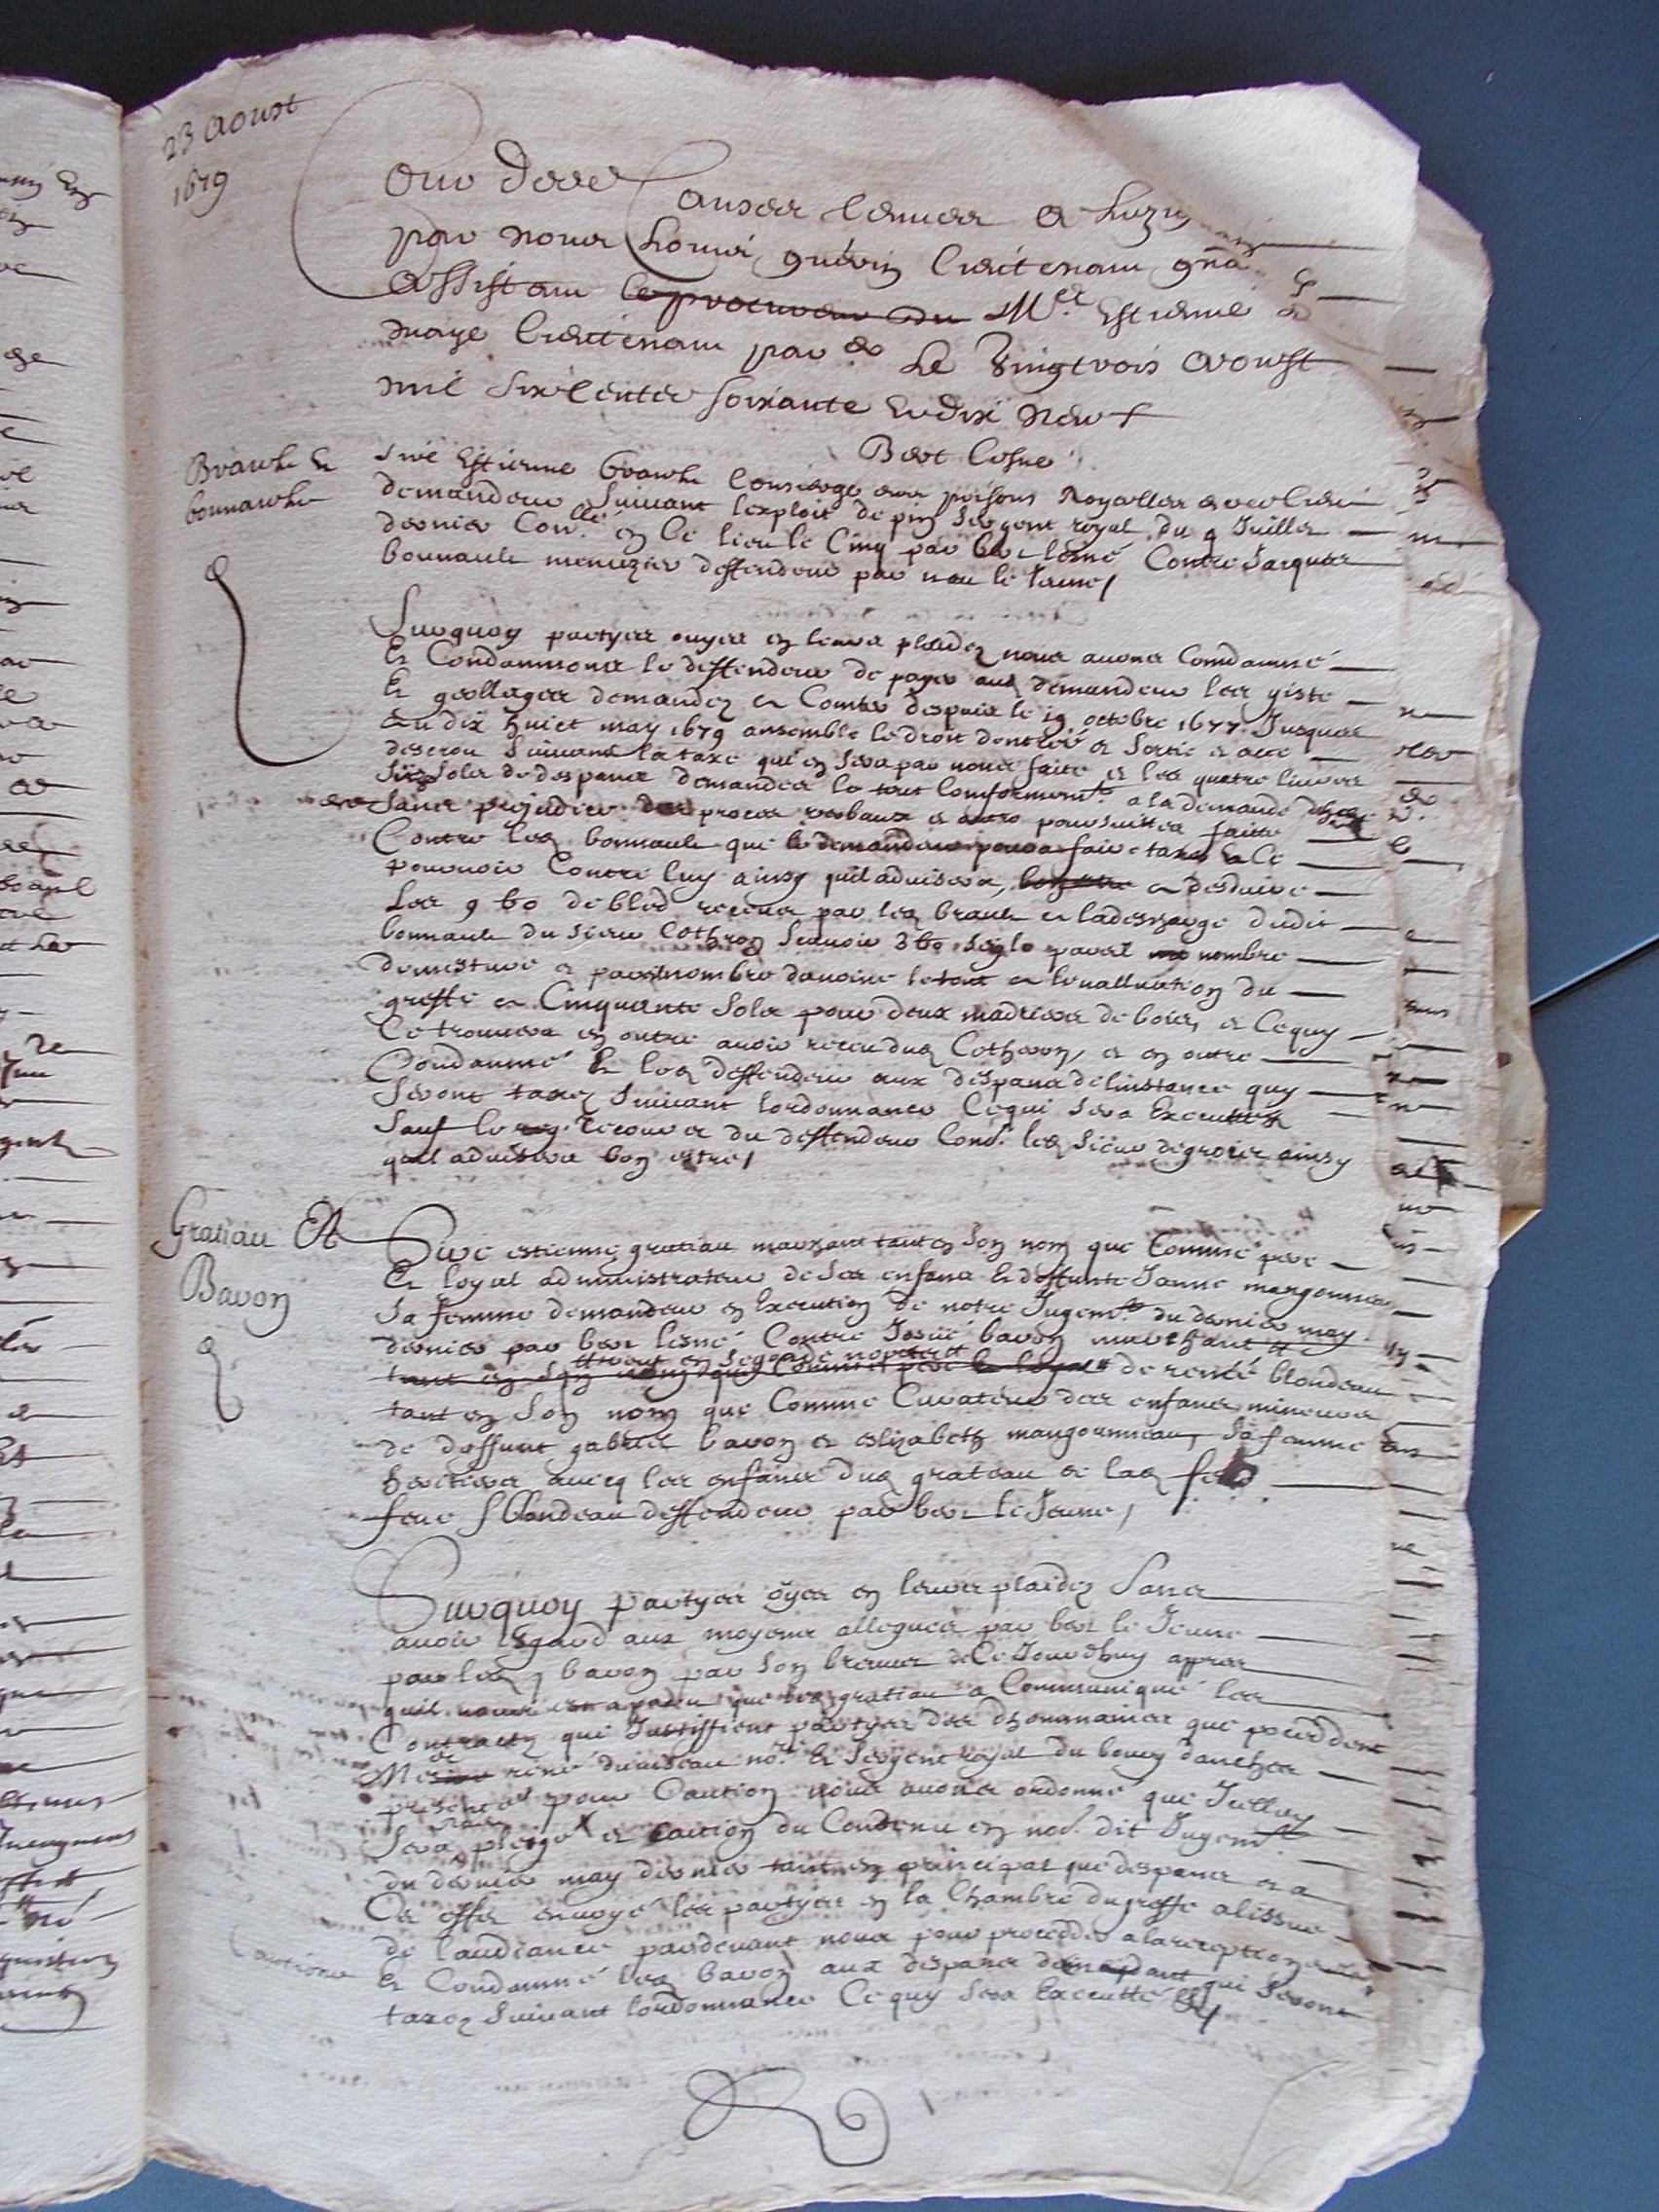 23 Aoust
1679
Cour des Causes tenues a Luzig
par nous Louis guerin lieutenant gnal
assistant le procureur du Mre Estienne
maye lieutenant par le vingtrois aoust
mil six centes soixante et dix neuf
Bert Lesne
Brault Et
bonnault
Sire Estienne brault Consierge des prisons Royalles
demandeur suivant lexploit de pin sergent royal du 9 Juillet
dernier Conllé en ce lieu le Cinq par bert lesné Contre Jacques
bonnault menuzier deffendeur par le Jeune /
Surquoy partyes ouyes en leurs plaidez nous avons Condamné
Et Condamnons le deffendeur de payer aud demandeur les giste
Et geollages demandez et Contes despuis le 19 octobre 1677 Jusques
au dix huict may 1679 ansemble le droit dentrée et sortie et acte
descrou suivant la taxe quy en sera par nous faite et les quatre livres
six sols de despans demandés le tout Comformemt a la demande
sans prejudice des procés verbaux et autre poursuittes faitte
Contre led bonnault que le demandeur poura faire taxer
pouruoir Contre luy ainsy quil advisera, et desduire
Les 9 bo de bled receus par led brault et la descharge dudit
bonnault du sieur Cothron scavoir 3 bo seigle pareil nombre
de mesture et pareil nombre davoine le tout en levalluation du
greffe et Cinquante sols pour deux madriers de bois, et Ce quy
Ce trouvera en outre avoir receu dud Cotheron, et en outre
Condamné led deffendeur aux despans de linstance quy
seront taxez suivant lordonnance Ce qui sera Executté
sauf le recours du deffendeur Conte led sieur degroies ainsy
quil advisera bon estre /
Gratiau Et
Bavon
Sire estienne gratiau marchant tant en son nom que Comme pere
Et loyal administrateur de ses enfans Et deffunte Janne mangonneau
sa femme demandeur en Execution de notre Jugemt du dernier may
dernier par bert lesné Contre Josué bavon marchant
de renée blondeau
tant en son nom que Comme Curateur des enfans mineurs
de deffunt gabriel bavon et eslizabeth mangonneau, sa femme
heritiers avecq les enfans dud grateau et lad
feue blondeau deffendeur par bert le Jeune /
Surquoy partyes oyes en leurs plaidez sans
avoir Esgard aux moyens allegués par bert le Jeune
pour led bavon par son brevet de Ce Jourdhuy appres
quil nous est aparu que led gratiau a Communiqué les
Contracts qui Justiffient partyes des dhommaines que possedent
Me rené duvisseau nore Et sergent royal du bourg danches
presenté pour Caution nous avons ordonné que Jcelluy
sera pleige et Caution du Contenu en nod. dit Jugemt
du dernier may dernier tant en principal que despans et a
Cet effet envoyé les partyes en la Chambre du greffe a lissue
de laudiance pardevant nous pour proceder a la reception
Cautions
Et Condamné led bavon aux despans qui seront
taxez suivant lordonnance Ce quy sera Executté